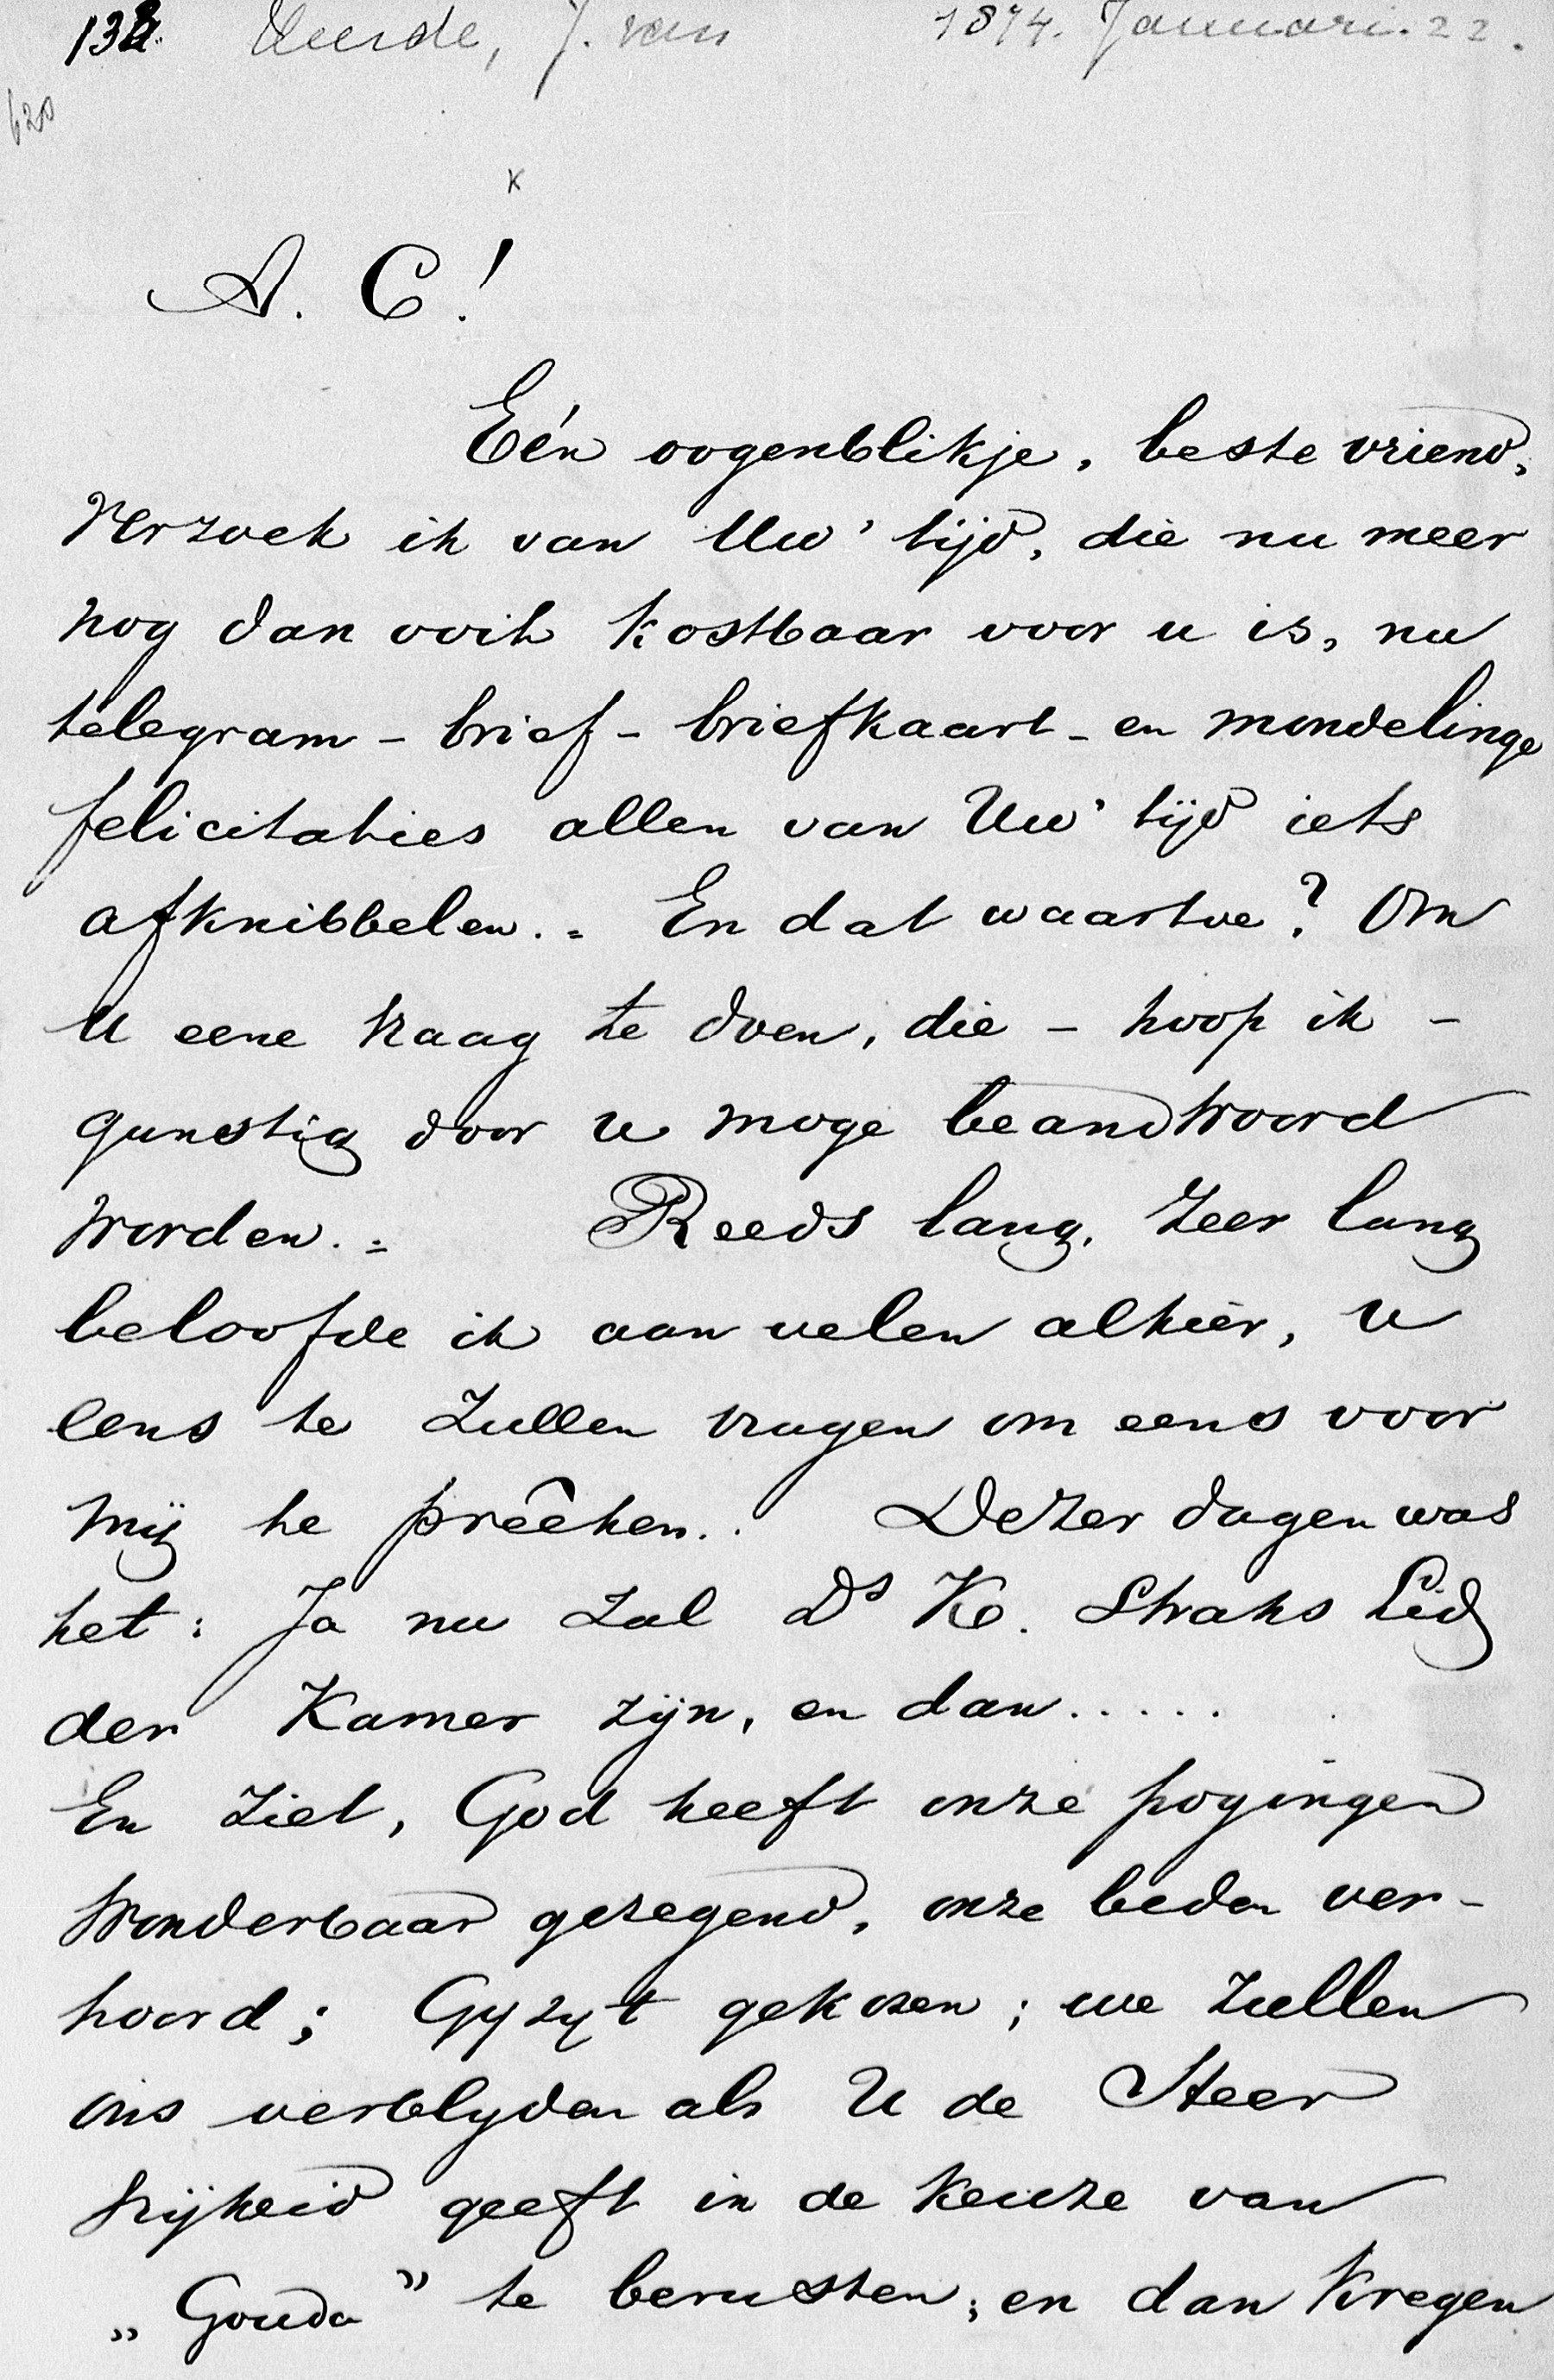 138. Heerde, J. van 1874. Januari. 22.
620
x
A. C.!
Eén oogenblikje, beste vriend,
verzoek ik van Uw' tijd, die nu meer
nog dan ooit kostbaar voor u is, nu
telegram - brief - briefkaart - en mondelinge
felicitaties allen van Uw' tijd iets
afknibbelen. = En dat waartoe? Om
U eene vraag te doen, die - hoop ik -
gunstig door u moge beandwoord
worden. = Reeds lang, zeer lang
beloofde ik aan velen alhier, u
eens te zullen vragen om eens voor
mij te prêeken.. Dezer dagen was
het: Ja nu zal Ds K. straks Lid
der Kamer zijn, en dan.....
En ziet, God heeft onze pogingen
wonderbaar gezegend, onze beden ver-
hoord; Gy zyt gekozen; we zullen
ons verblyden als U de Heer
vrijheid geeft in de keuze van
„Gouda" te berusten; en dan kregen